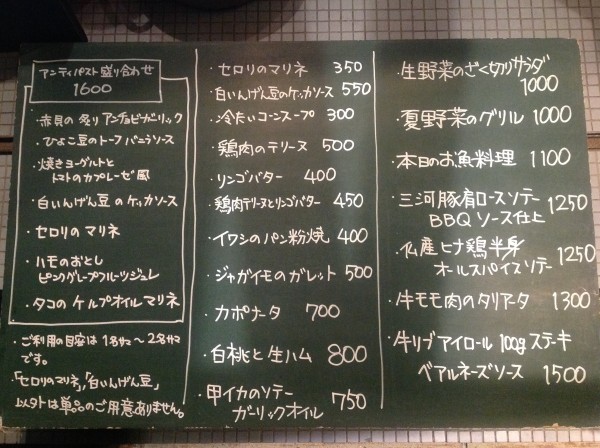 アンティパスト盛り合わせ
1600
・赤貝の炙り アンチョビガーリック
・ひよこ豆のトーフ バニラソース
・焼きヨーグルトと
トマトのカプレーゼ風
・白いんげん豆のケッカソース
・セロリのマリネ
・ハモのおとし
ピンクグレープフルーツジュレ
・タコのケルプオイルマリネ
・ご利用の目安は1名サマ〜2名サマ
です。
・「セロリのマリネ」「白いんげん豆」
以外は単品のご用意ありません。
・セロリのマリネ 350
・白いんげん豆のケッカソース 550
・冷たいコーンスープ 300
・鶏肉のテリーヌ 500
・リンゴバター 400
・鶏肉テリーヌとリンゴバター 450
・イワシのパン粉焼 400
・ジャガイモのガレット 500
・カポナータ 700
・白桃と生ハム 800
・甲イカのソテー
ガーリックオイル 750
・生野菜のざく切りサラダ
1000
・夏野菜のグリル 1000
・本日のお魚料理 1100
・三河豚肩ロースソテー
BBQソース仕上 1250
・仏産ヒナ鶏半身
オールスパイスソテー 1250
・牛モモ肉のタリアータ 1300
・牛リブアイロール100gステーキ
ベアルネーズソース 1500